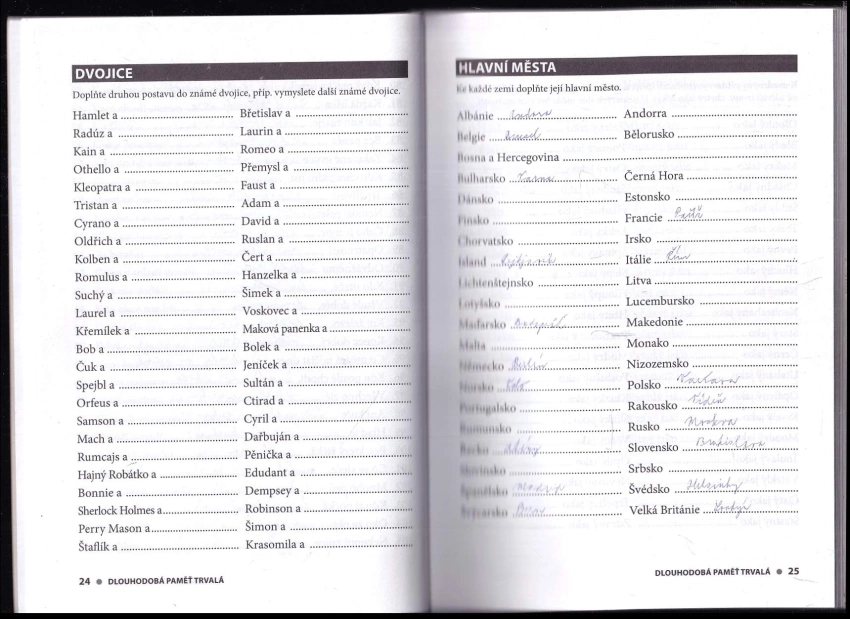 DVOJICE
Doplňte druhou postavu do známé dvojice, příp. vymyslete další známé dvojice.
Hamlet a
Radúz a
Kain a
Othello a
Kleopatra a
Tristan a
Cyrano a
Oldřich a
Kolben a
Romulus a
Suchý a
Laurel a
Křemílek a
Bob a
Čuk a
Spejbl a
Orfeus a
Samson a
Mach a
Rumcajs a
Hajný Robátko a
Bonnie a
Sherlock Holmes a
Perry Mason a
Štaflík a
Břetislav a
Laurin a
Romeo a
Přemysl a
Faust a
Adam a
David a
Ruslan a
Čert a
Hanzelka a
Šimek a
Voskovec a
Maková panenka a
Bolek a
Jeníček a
Sultán a
Ctirad a
Cyril a
Dařbuján a
Pěnička a
Edudant a
Dempsey a
Robinson a
Šimon a
Krasomila a
24 ● DLOUHODOBÁ PAMĚŤ TRVALÁ
HLAVNÍ MĚSTA
Ke každé zemi doplňte její hlavní město.
Albánie
Belgie
Bosna a Hercegovina
Bulharsko
Dánsko
Finsko
Chorvatsko
Island
Lichtenštejnsko
Lotyšsko
Maďarsko
Malta
Německo Berlín
Norsko
Portugalsko
Rumunsko
Řecko
Slovinsko
Španělsko
Švýcarsko
Andorra
Bělorusko
Černá Hora
Estonsko
Francie
Irsko
Itálie Řím
Litva
Lucembursko
Makedonie
Monako
Nizozemsko
Polsko
Rakousko Vídeň
Rusko Moskva
Slovensko Bratislava
Srbsko
Švédsko Helsinky
Velká Británie
DLOUHODOBÁ PAMĚŤ TRVALÁ ● 25